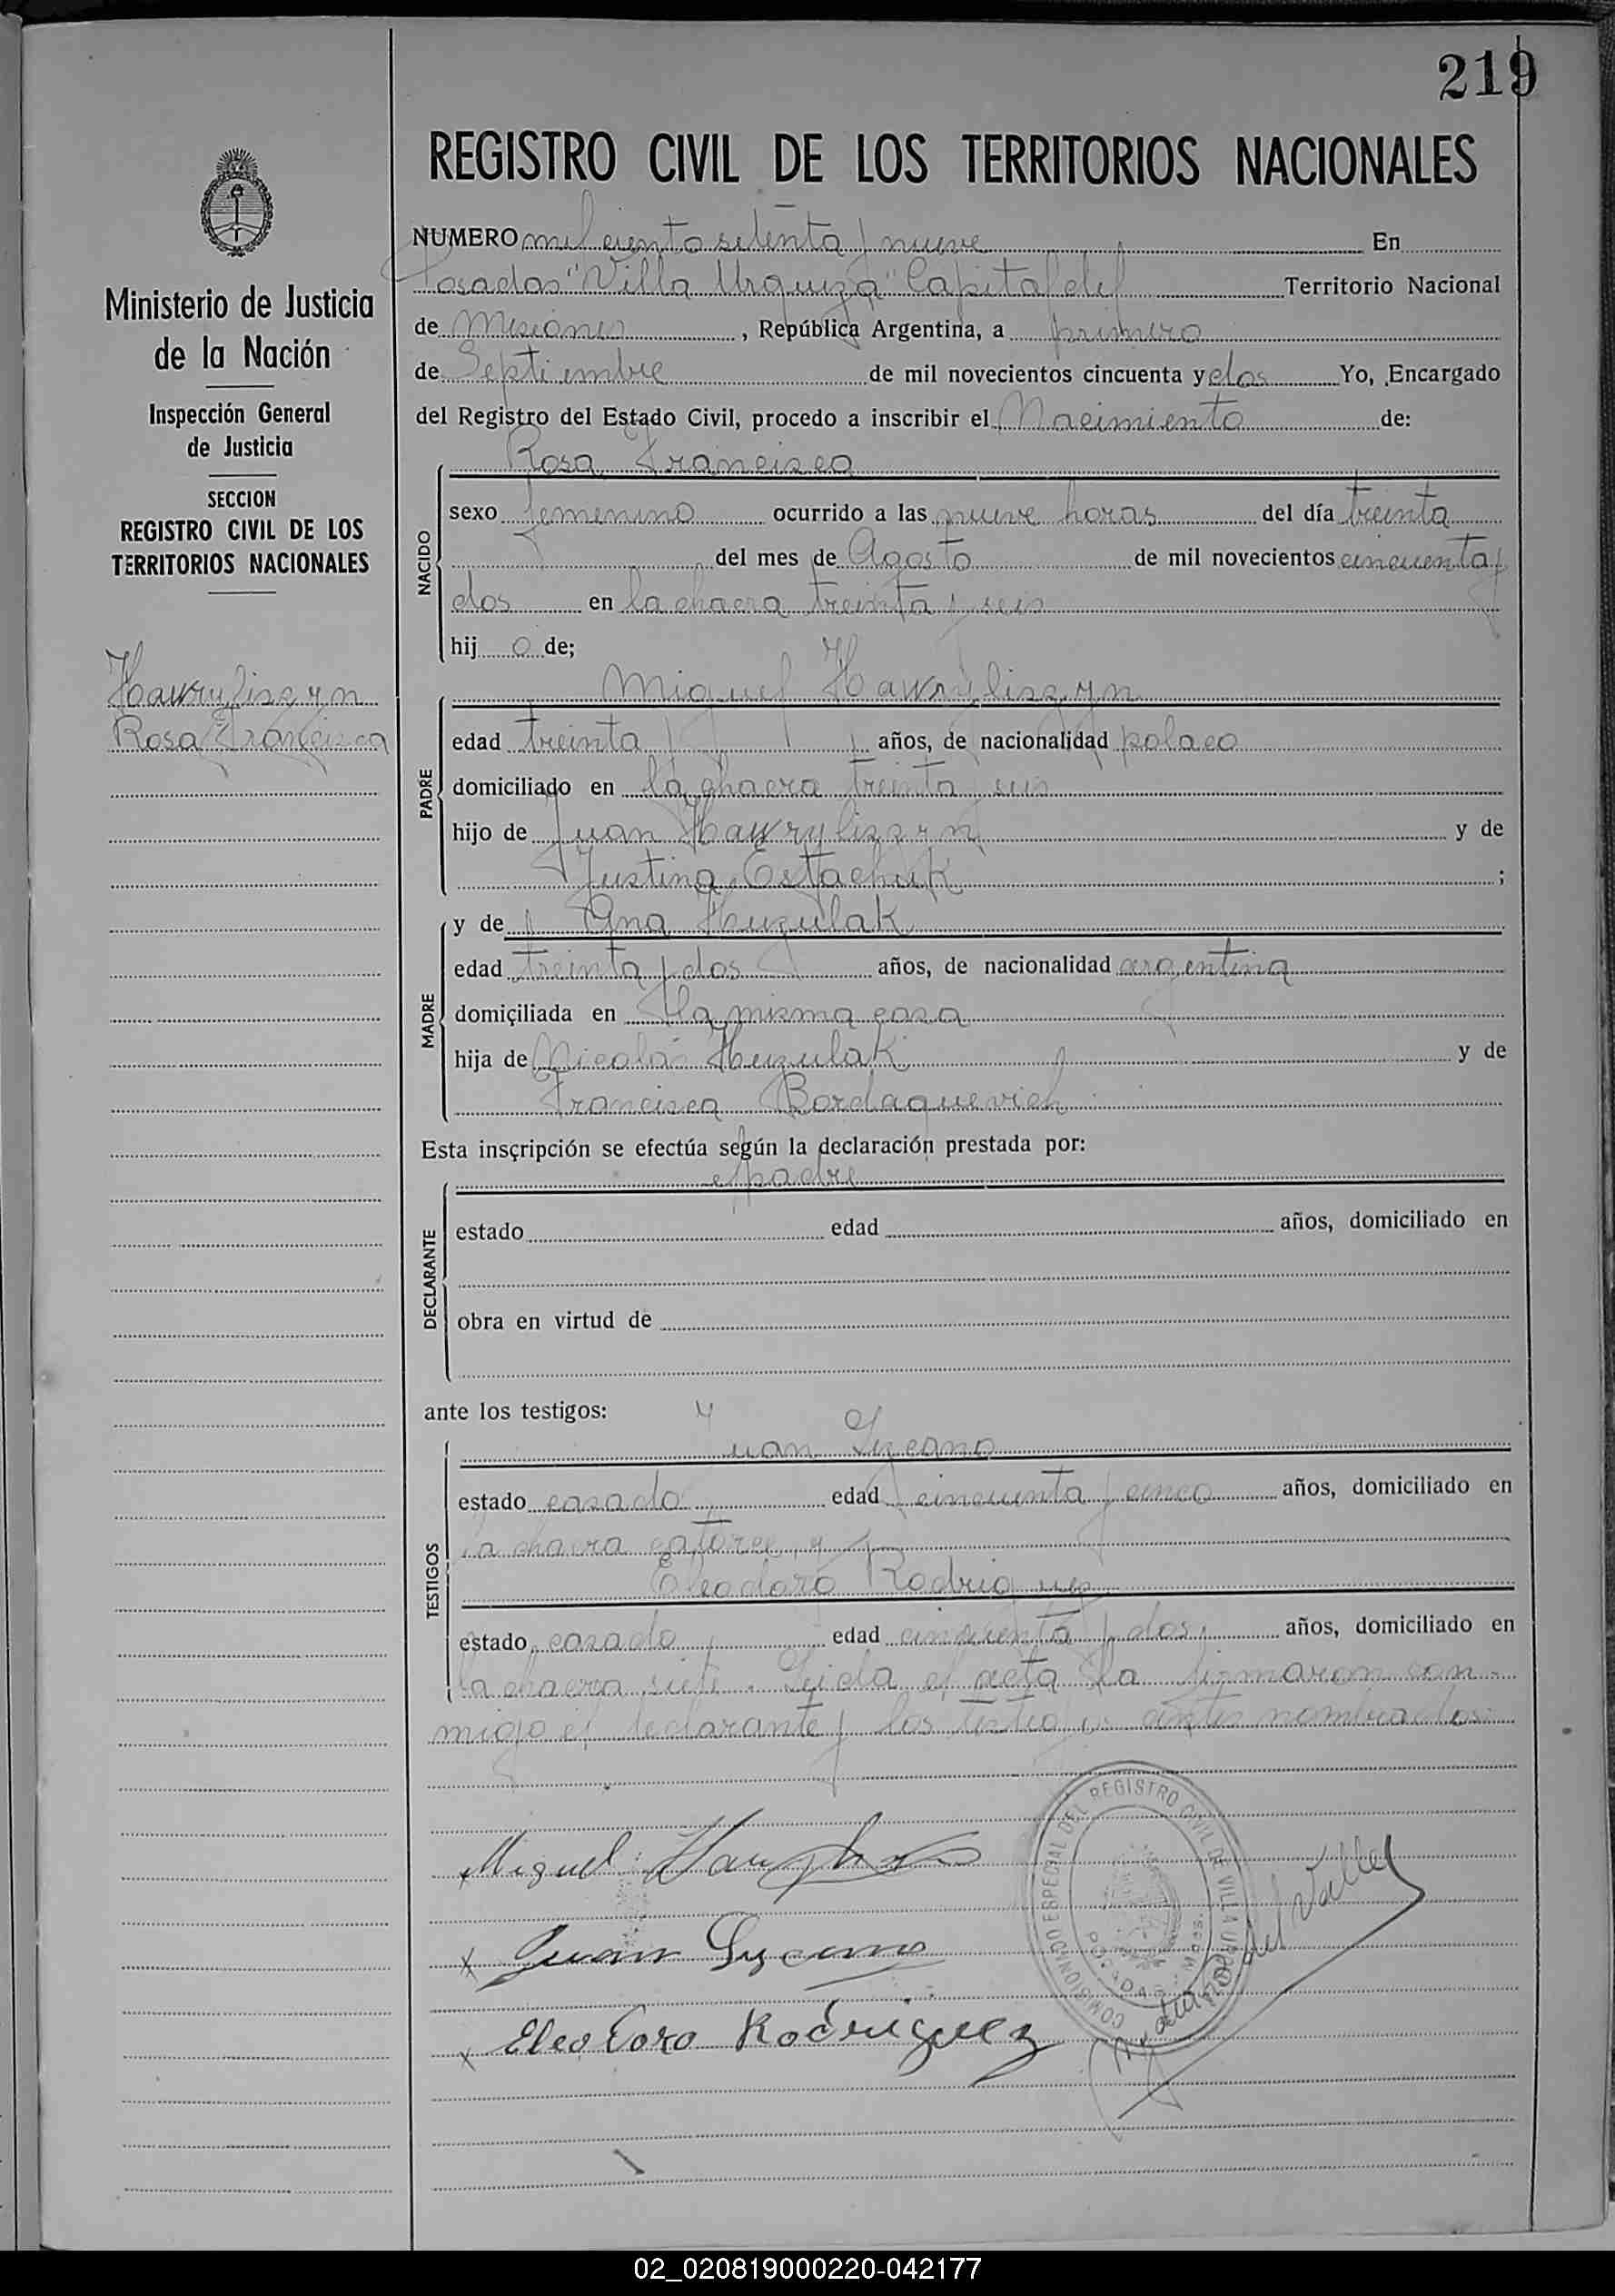 219
REGISTRO CIVIL DE LOS TERRITORIOS NACIONALES
Ministerio de Justicia
de la Nación
Inspección General
de Justicia
SECCION
REGISTRO CIVIL DE LOS
TERRITORIOS NACIONALES
Hawryliszyn
Rosa Francisca
NUMERO mil ciento setenta y nueve En
Posadas "Villa Urquiza" Capital del Territorio Nacional
de Misiones, República Argentina, a primero
de Septiembre de mil novecientos cincuenta y dos Yo, Encargado
del Registro del Estado Civil, procedo a inscribir el Nacimiento de:
Rosa Francisca
NACIDO
sexo femenino ocurrido a las nueve horas del día treinta
del mes de Agosto de mil novecientos cincuenta y
dos en la chacra treinta y seis
hij o de;
PADRE
Miguel Hawryliszyn
edad treinta años, de nacionalidad polaco
domiciliado en la chacra treinta y seis
hijo de Juan Hawryliszyn y de
Justina Ostachuk ;
MADRE
y de Ana Huzulak
edad treinta y dos años, de nacionalidad argentina
domiciliada en la misma casa
hija de Nicolás Huzulak y de
Francisca Bordaquevich
Esta inscripción se efectúa según la declaración prestada por:
el padre
DECLARANTE
estado edad años, domiciliado en
obra en virtud de
ante los testigos:
TESTIGOS
Juan Lyzeano
estado casado edad cincuenta y cinco años, domiciliado en
la chacra catorce, y
Eleodoro Rodriguez
estado casado edad cincuenta y dos años, domiciliado en
la chacra siete. Leida el acta la firmaron con-
migo el declarante y los testigos antes nombrados.
Miguel
x Juan
x Eleodoro Rodriguez
COMISIONADO ESPECIAL DEL REGISTRO CIVIL DE VILLA URQUIZA
POSADAS - Mnes.
del Valle
02_020819000220-042177